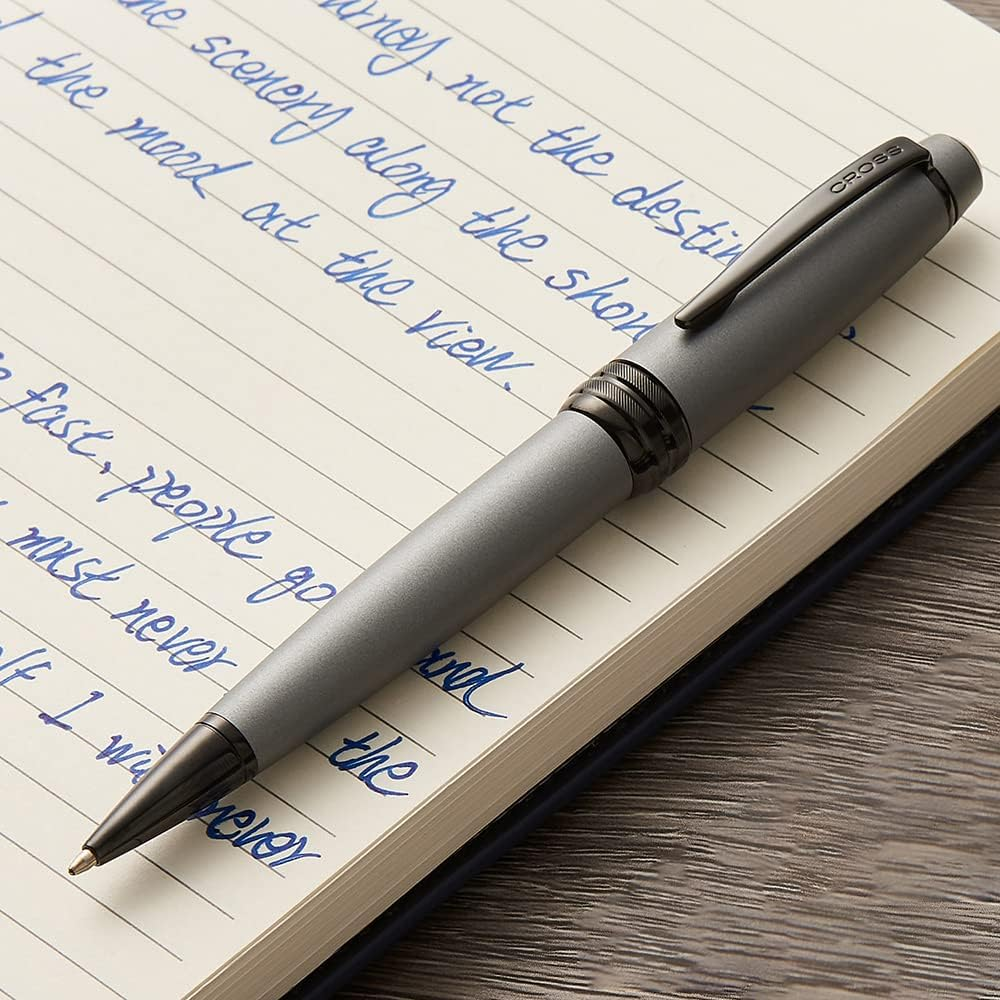 urney, not the destin
he scenery along the shor
the mood at the view.
fast, people go and
must never the
lf I wi never
CROSS